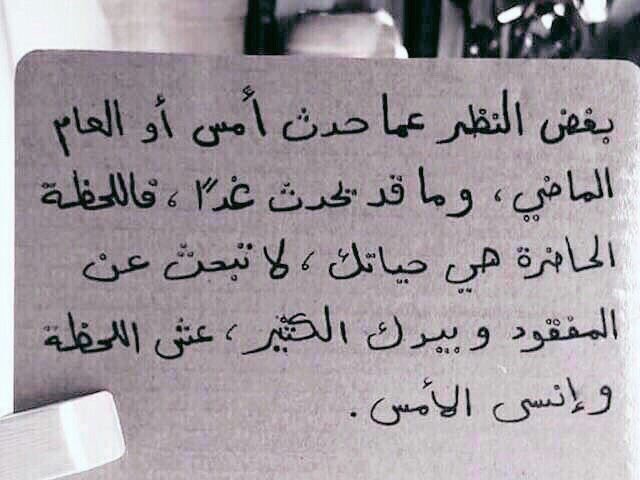 بغض النظر عما حدث أمس أو العام
الماضي، وما قد يحدث غدًا، فاللحظة
الحاضرة هي حياتك، لا تبحث عن
المفقود وبيدك الكثير، عش اللحظة
وإنسى الأمس.